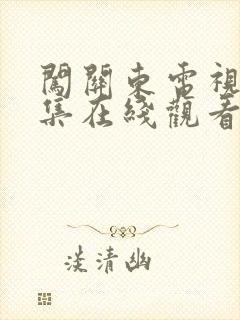 闖關東電視
集在綫觀看
淡清幽